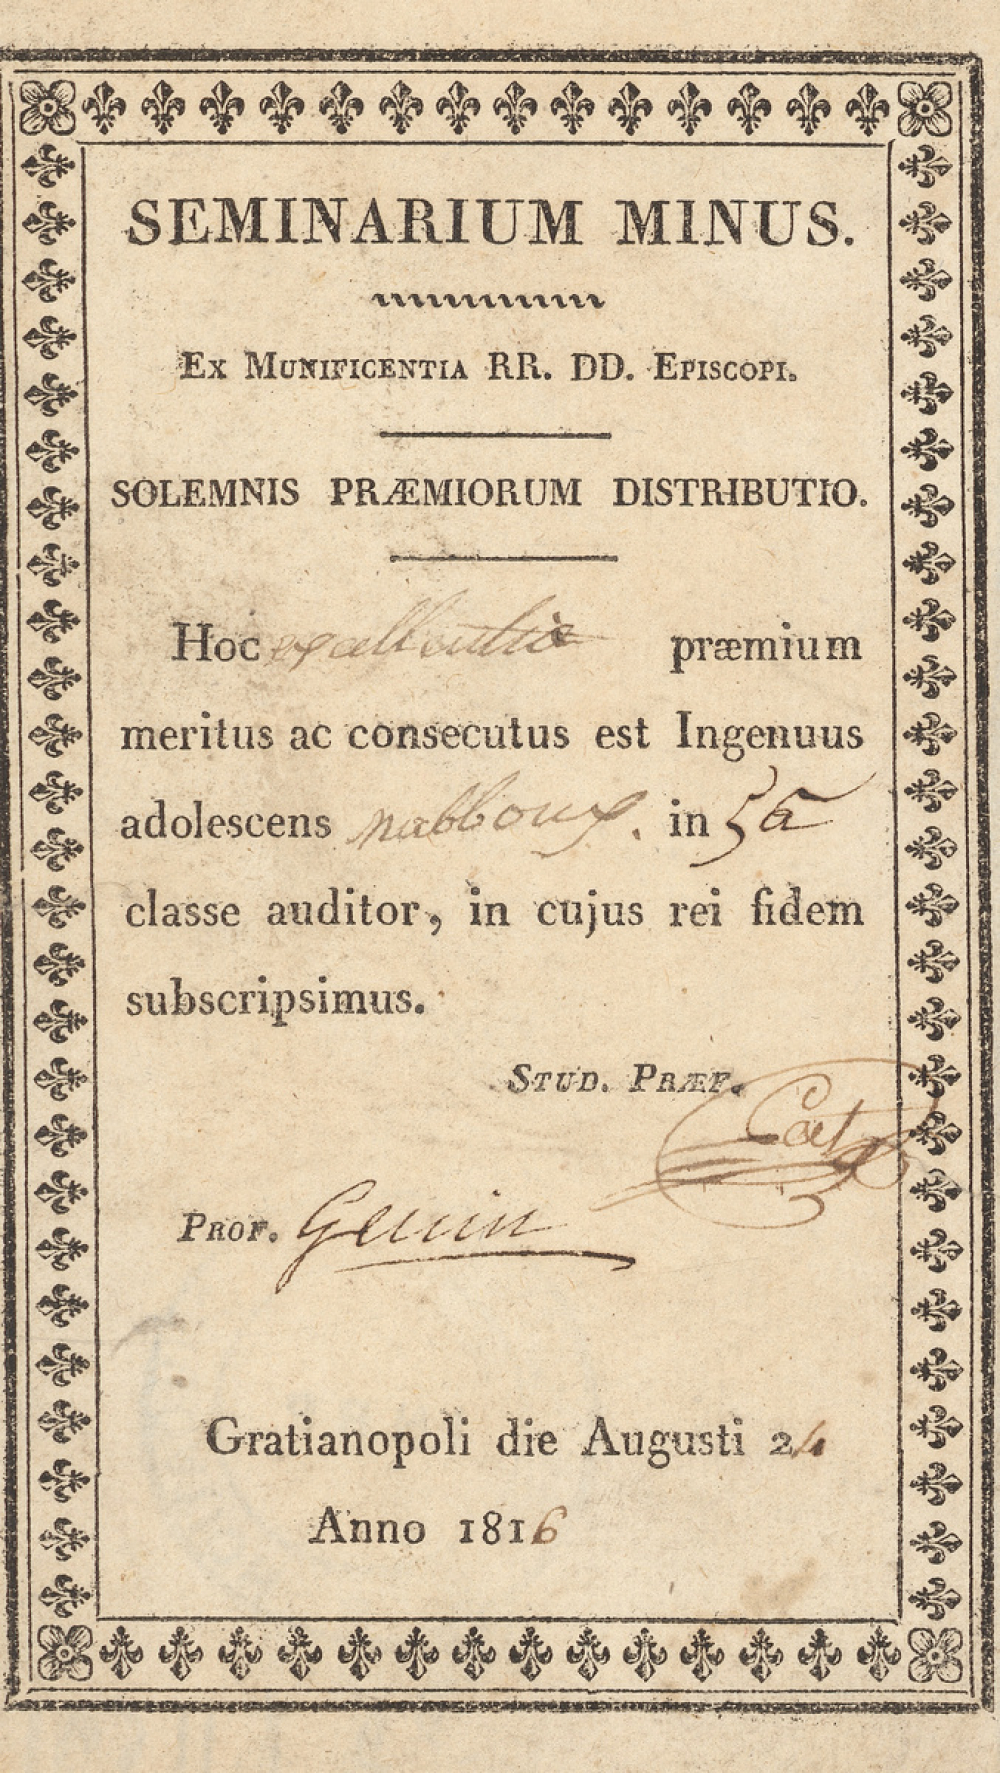 SEMINARIUM MINUS.
EX MUNIFICENTIA RR. DD. EPISCOPI.
SOLEMNIS PRÆMIORUM DISTRIBUTIO.
Hoc excellentiæ præmium
meritus ac consecutus est Ingenuus
adolescens nabboux. in 5a
classe auditor, in cujus rei fidem
subscripsimus.
STUD. PRÆF.
PROF. Genin
Gratianopoli die Augusti 24
Anno 1816